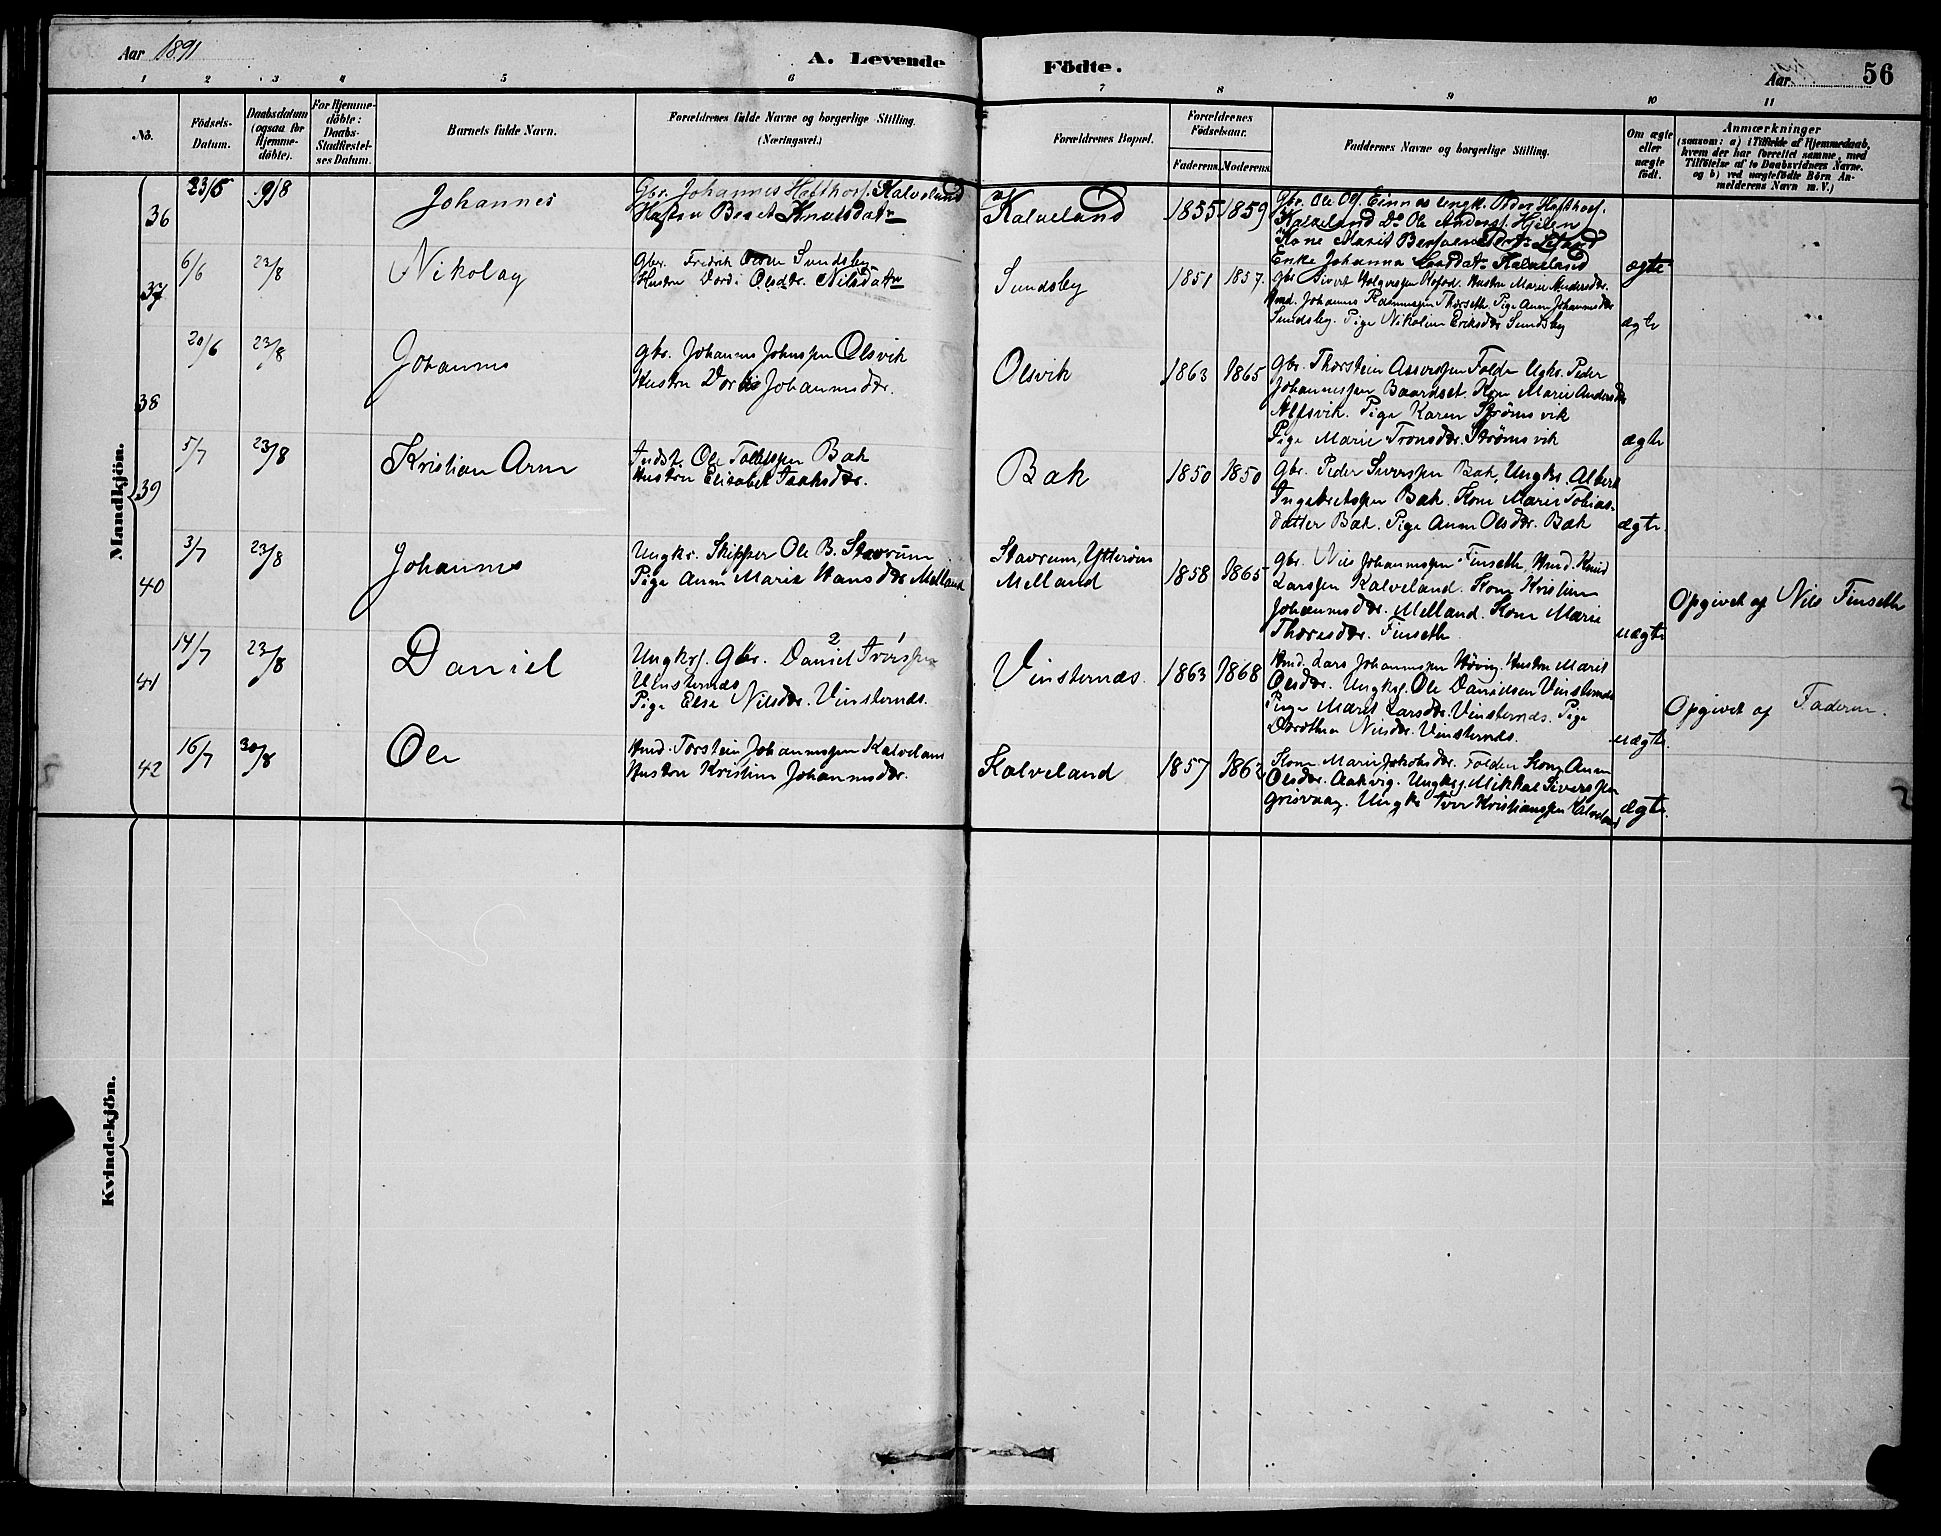 Aar 1891
A. Levende Födte.
Aar 56
1 2 3 4 5 6 7 8 9 10 11
No.
Födsels-Datum.
Daabsdatum (ogsaa for Hjemme-döbte).
For Hjemme-döbte: Daabs-Stadfæstel-ses Datum.
Barnets fulde Navn.
Forældrenes fulde Navne og borgerlige Stilling. (Næringsvei.)
Forældrenes Bopæl.
Forældrenes Födselsaar.
Faderens. Moderens.
Faddernes Navne og borgerlige Stilling.
Om ægte eller uægte födt.
Anmærkninger
(saasom: a) i Tilfælde af Hjemmedaab,
hvem der har forrettet samme, med
Tilföielse af to Daabsvidners Navne.
og b) ved uægtefödte Börn An-
melderens Navn m. V.)
Mandkjön.
36 23/5 9/8 Johannes
Gbr. Johannes Halthorf. Kalveland
Hustru Beret Knutsdatr
Kalveland 1855 1859
Gbr. Ole Olf. Ungk. Peder Halthorf.
Kalveland Do Ole Andersf. Hjelen
Kone Marit
Enke Johanna Kalveland ægte
37 6/6 23/8 Nikolay
Gbr. Fredrik Sundsby
Hustru Dord. Olsdr. Nilsdatr
Sundsby 1851 1857
Gbr. Sivert Hustru Marie Andersdr.
Ind. Johannes Rasmussen Thorseth Pige Anne Johannesdr
Sundsby. Pige Nikoline Eriksdr Sundsby ægte
38 20/6 23/8 Johannes
Gbr. Johannes Johnsen Olsvik
Hustru Johannesdr.
Olsvik 1863 1865
Gbr. Thorstein Folden Ugkr. Peder
Johannessen Baardset. Kone Marie Andersdr
Pige Karen Strømsvik
Pige Marie Tronsdr. Strømsvik ægte
39 5/7 23/8 Kristian Arne
Indst. Ole Bak
Hustru Elisabet Isaksdr.
Bak 1850 1850
Gbr. Peder Siversen Bak, Ungkr. Albert
Ingebretsen Bak. Kone Marie Tobias-
datter Bak. Pige Anne Olsdr. Bak ægte.
40 3/7 23/8 Johannes
Ungkr. Skipper Ole B. Stavrum
Pige Anne Marie Hansdr Melland
Stavrum, Ytterøen
Melland 1858 1865
Gbr. Nils Johannessen Finseth Ind. Knud
Larssen Kalveland. Kone Kristine
Johannesdr. Melland. Kone Marie
Thoresdr. Finseth uægte
Opgivet af Nils Finseth
41 14/7 23/8 Daniel
Ungkf. Gbr. Daniel 2 Iversen 1
Vinsternæs
Pige Else Nilsdr. Vinsternæs.
Vinsternæs. 1863 1868
Ind. Lars Johannessen Høvig. Hustru Marit
Olsdr. Ungkf. Ole Danielsen Vinsternæs
Pige Marit Larsdr. Vinsternæs. Pige
Dorothea Nilsdr. Vinsternæs. uægte.
Opgivet af Faderen.
42 16/7 30/8 Ole
Ind. Torstein Johannessen Kalveland
Hustru Kristine Johannesdr.
Kalveland 1857
Kone Marie Jakobsdr. Folden Kone Anne
Olsdr. Aakvig. Ungkf. Mikkal Siversen
Grisvaag. Ungk. Iver Kristiansen Kalveland ægte.
Kvindekjön.